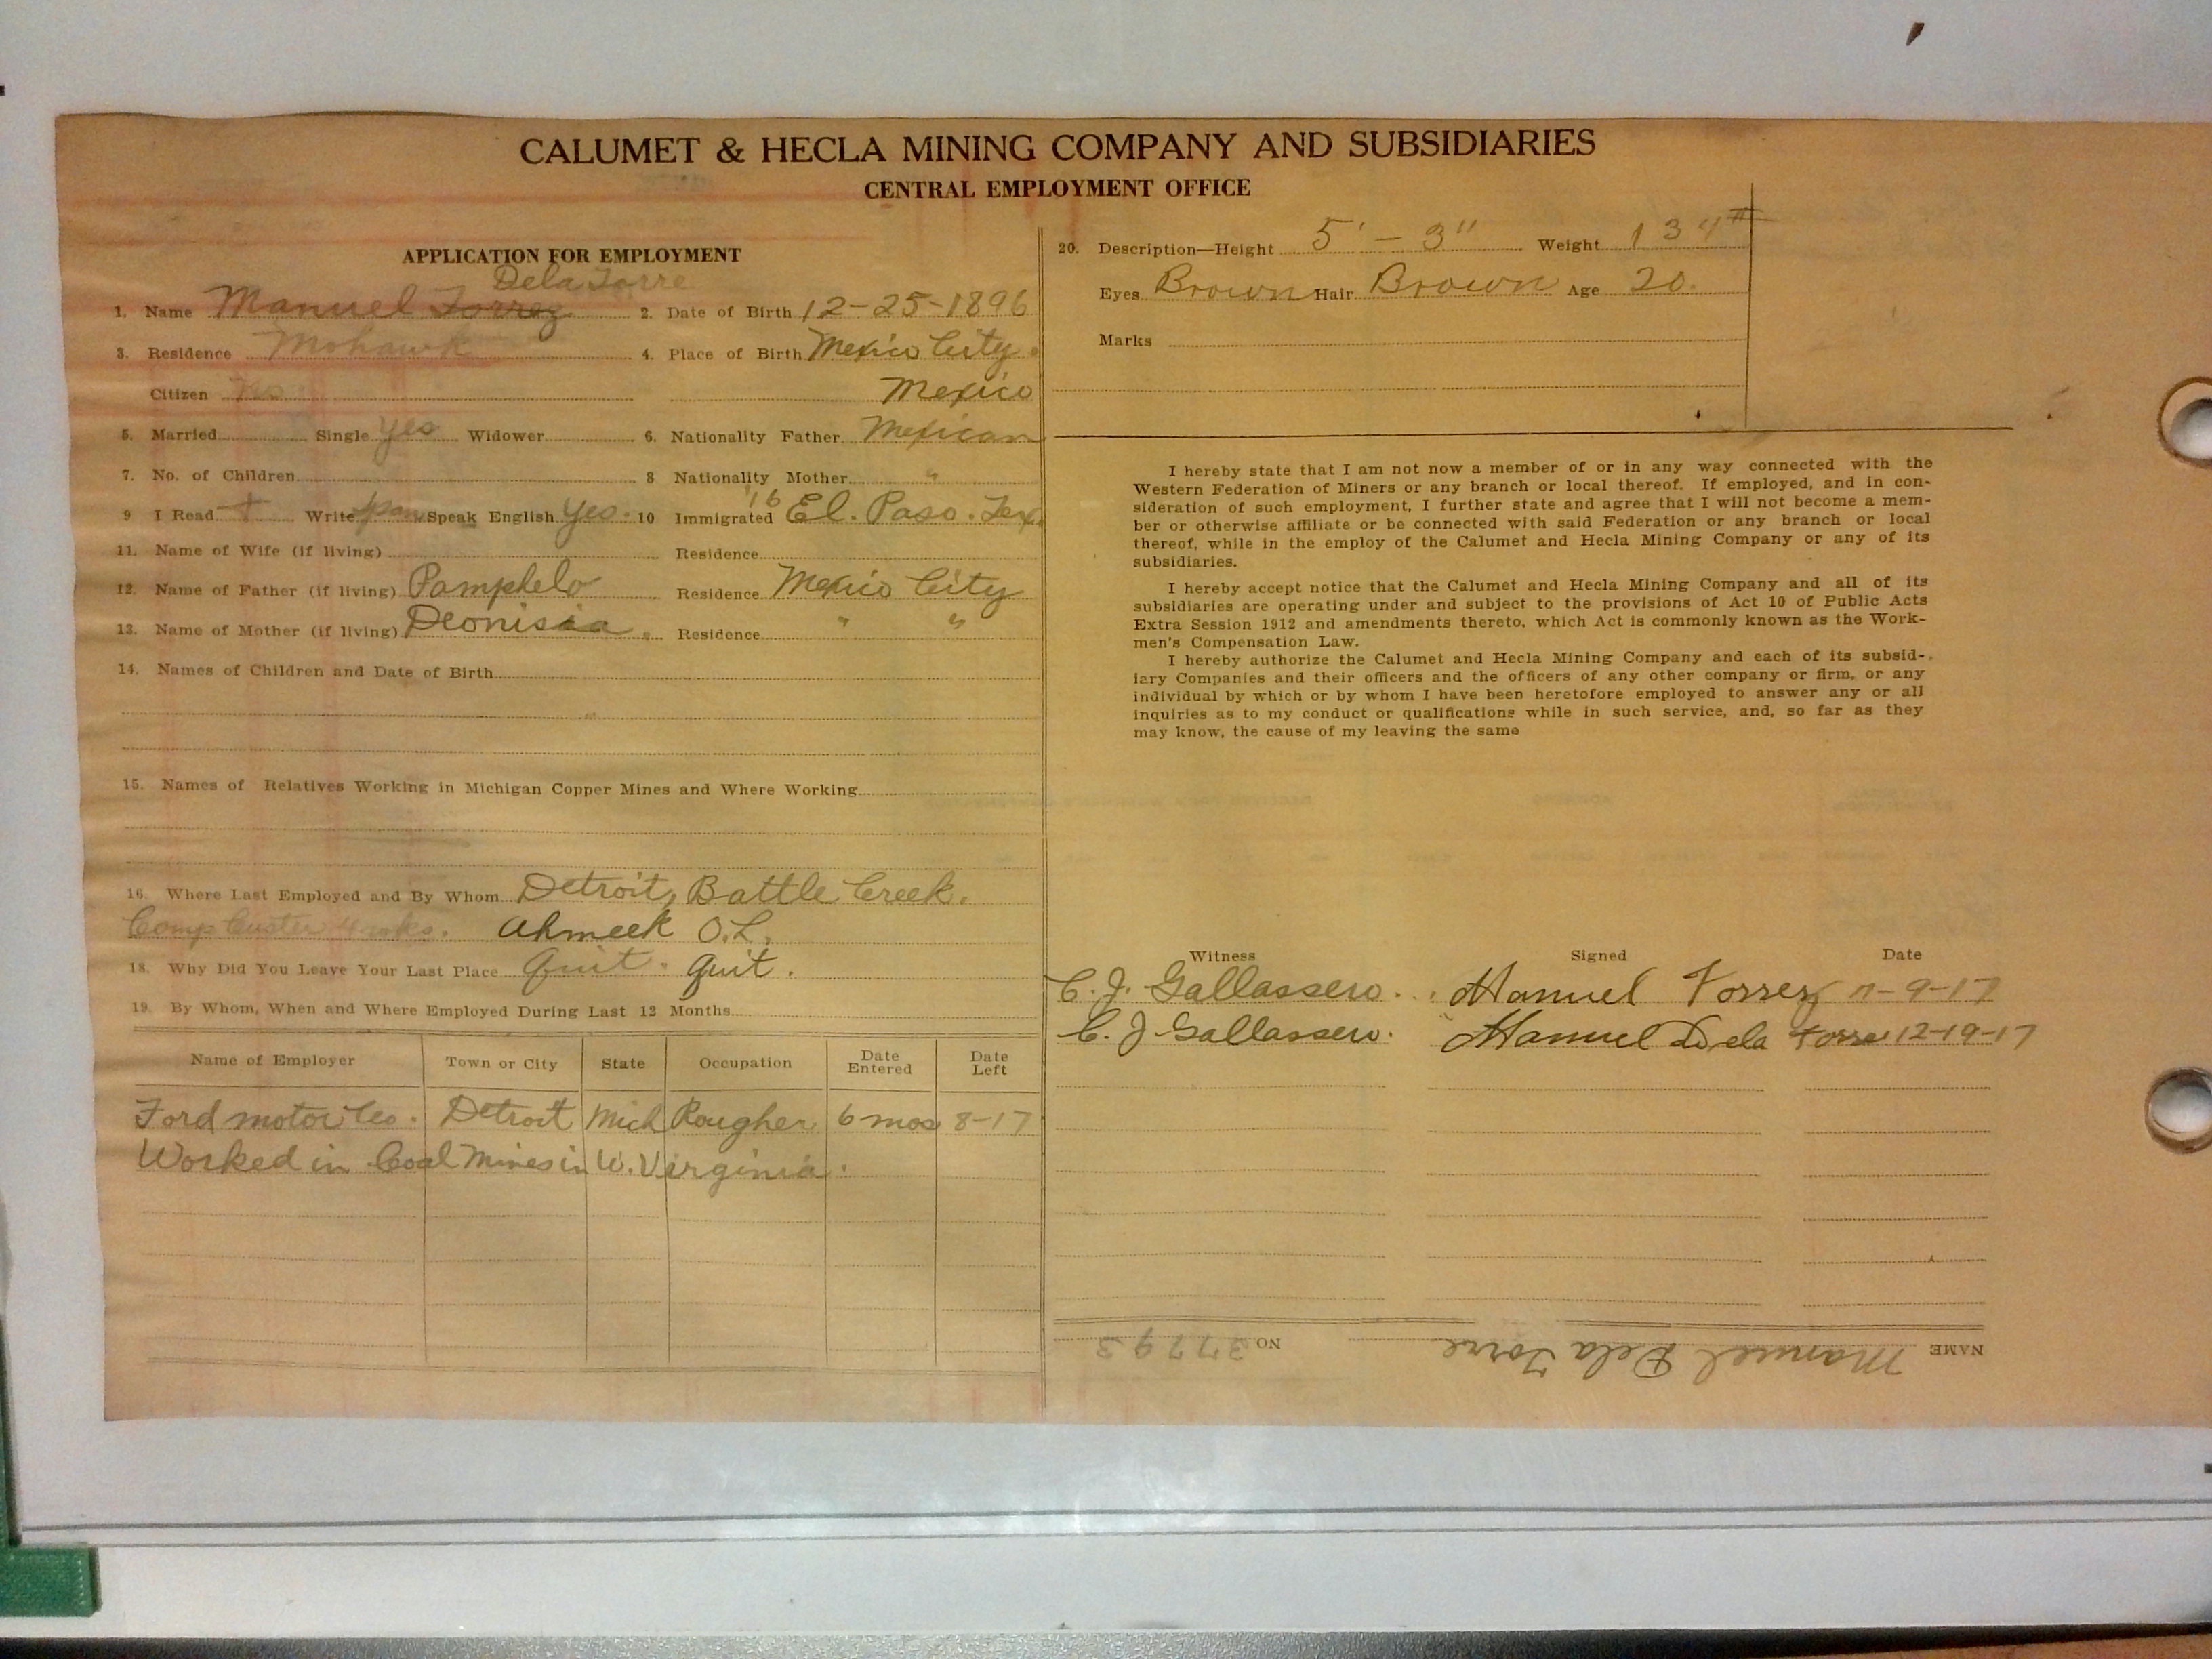 CALUMET & HECLA MINING COMPANY AND SUBSIDIARIES
CENTRAL EMPLOYMENT OFFICE
APPLICATION FOR EMPLOYMENT
Dela Torre
1. Name Manuel Torrez 2. Date of Birth 12-25-1896
3. Residence Mohawk 4. Place of Birth Mexico City.
Citizen No Mexico
5. Married Single yes Widower 6. Nationality Father Mexican
7. No. of Children 8 Nationality Mother "
9 I Read + Write Span Speak English yes. 10 Immigrated '16 El. Paso. Tex.
11. Name of Wife (if living) Residence
12. Name of Father (if living) Pamphelo Residence Mexico City
13. Name of Mother (if living) Deonisia Residence " "
14. Names of Children and Date of Birth
15. Names of Relatives Working in Michigan Copper Mines and Where Working
16. Where Last Employed and By Whom Detroit, Battle Creek.
Camp Custer 4 wks. Ahmeek O.L.
18. Why Did You Leave Your Last Place Quit. Quit.
19. By Whom, When and Where Employed During Last 12 Months
Name of Employer Town or City State Occupation Date Entered Date Left
Ford motor Co. Detroit Mich Rougher 6 mos 8-17
Worked in Coal Mines in W. Virginia.
20. Description—Height 5' - 3" Weight 134#
Eyes Brown Hair Brown Age 20.
Marks
I hereby state that I am not now a member of or in any way connected with the
Western Federation of Miners or any branch or local thereof. If employed, and in con-
sideration of such employment, I further state and agree that I will not become a mem-
ber or otherwise affiliate or be connected with said Federation or any branch or local
thereof, while in the employ of the Calumet and Hecla Mining Company or any of its
subsidiaries.
I hereby accept notice that the Calumet and Hecla Mining Company and all of its
subsidiaries are operating under and subject to the provisions of Act 10 of Public Acts
Extra Session 1912 and amendments thereto, which Act is commonly known as the Work-
men's Compensation Law.
I hereby authorize the Calumet and Hecla Mining Company and each of its subsid-
iary Companies and their officers and the officers of any other company or firm, or any
individual by which or by whom I have been heretofore employed to answer any or all
inquiries as to my conduct or qualifications while in such service, and, so far as they
may know, the cause of my leaving the same
Witness Signed Date
C. J. Gallassero. Manuel Torrez 11-9-17
C. J. Gallassero. Manuel Dela Torre 12-19-17
NAME Manuel Dela Torre NO 37793